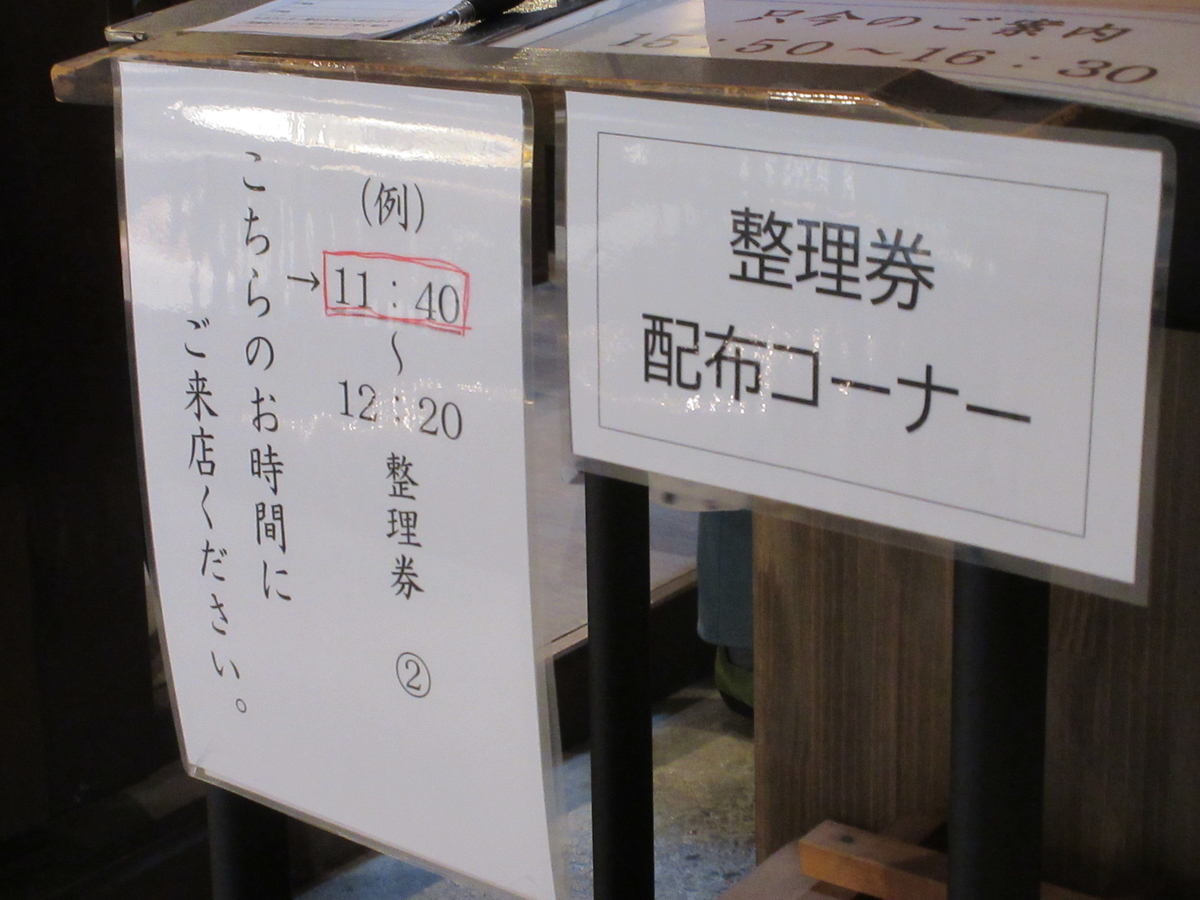 只今のご案内
15:50～16:30
整理券
配布コーナー
(例)
→11:40
～
12:20
整理券 ②
こちらのお時間に
ご来店ください。